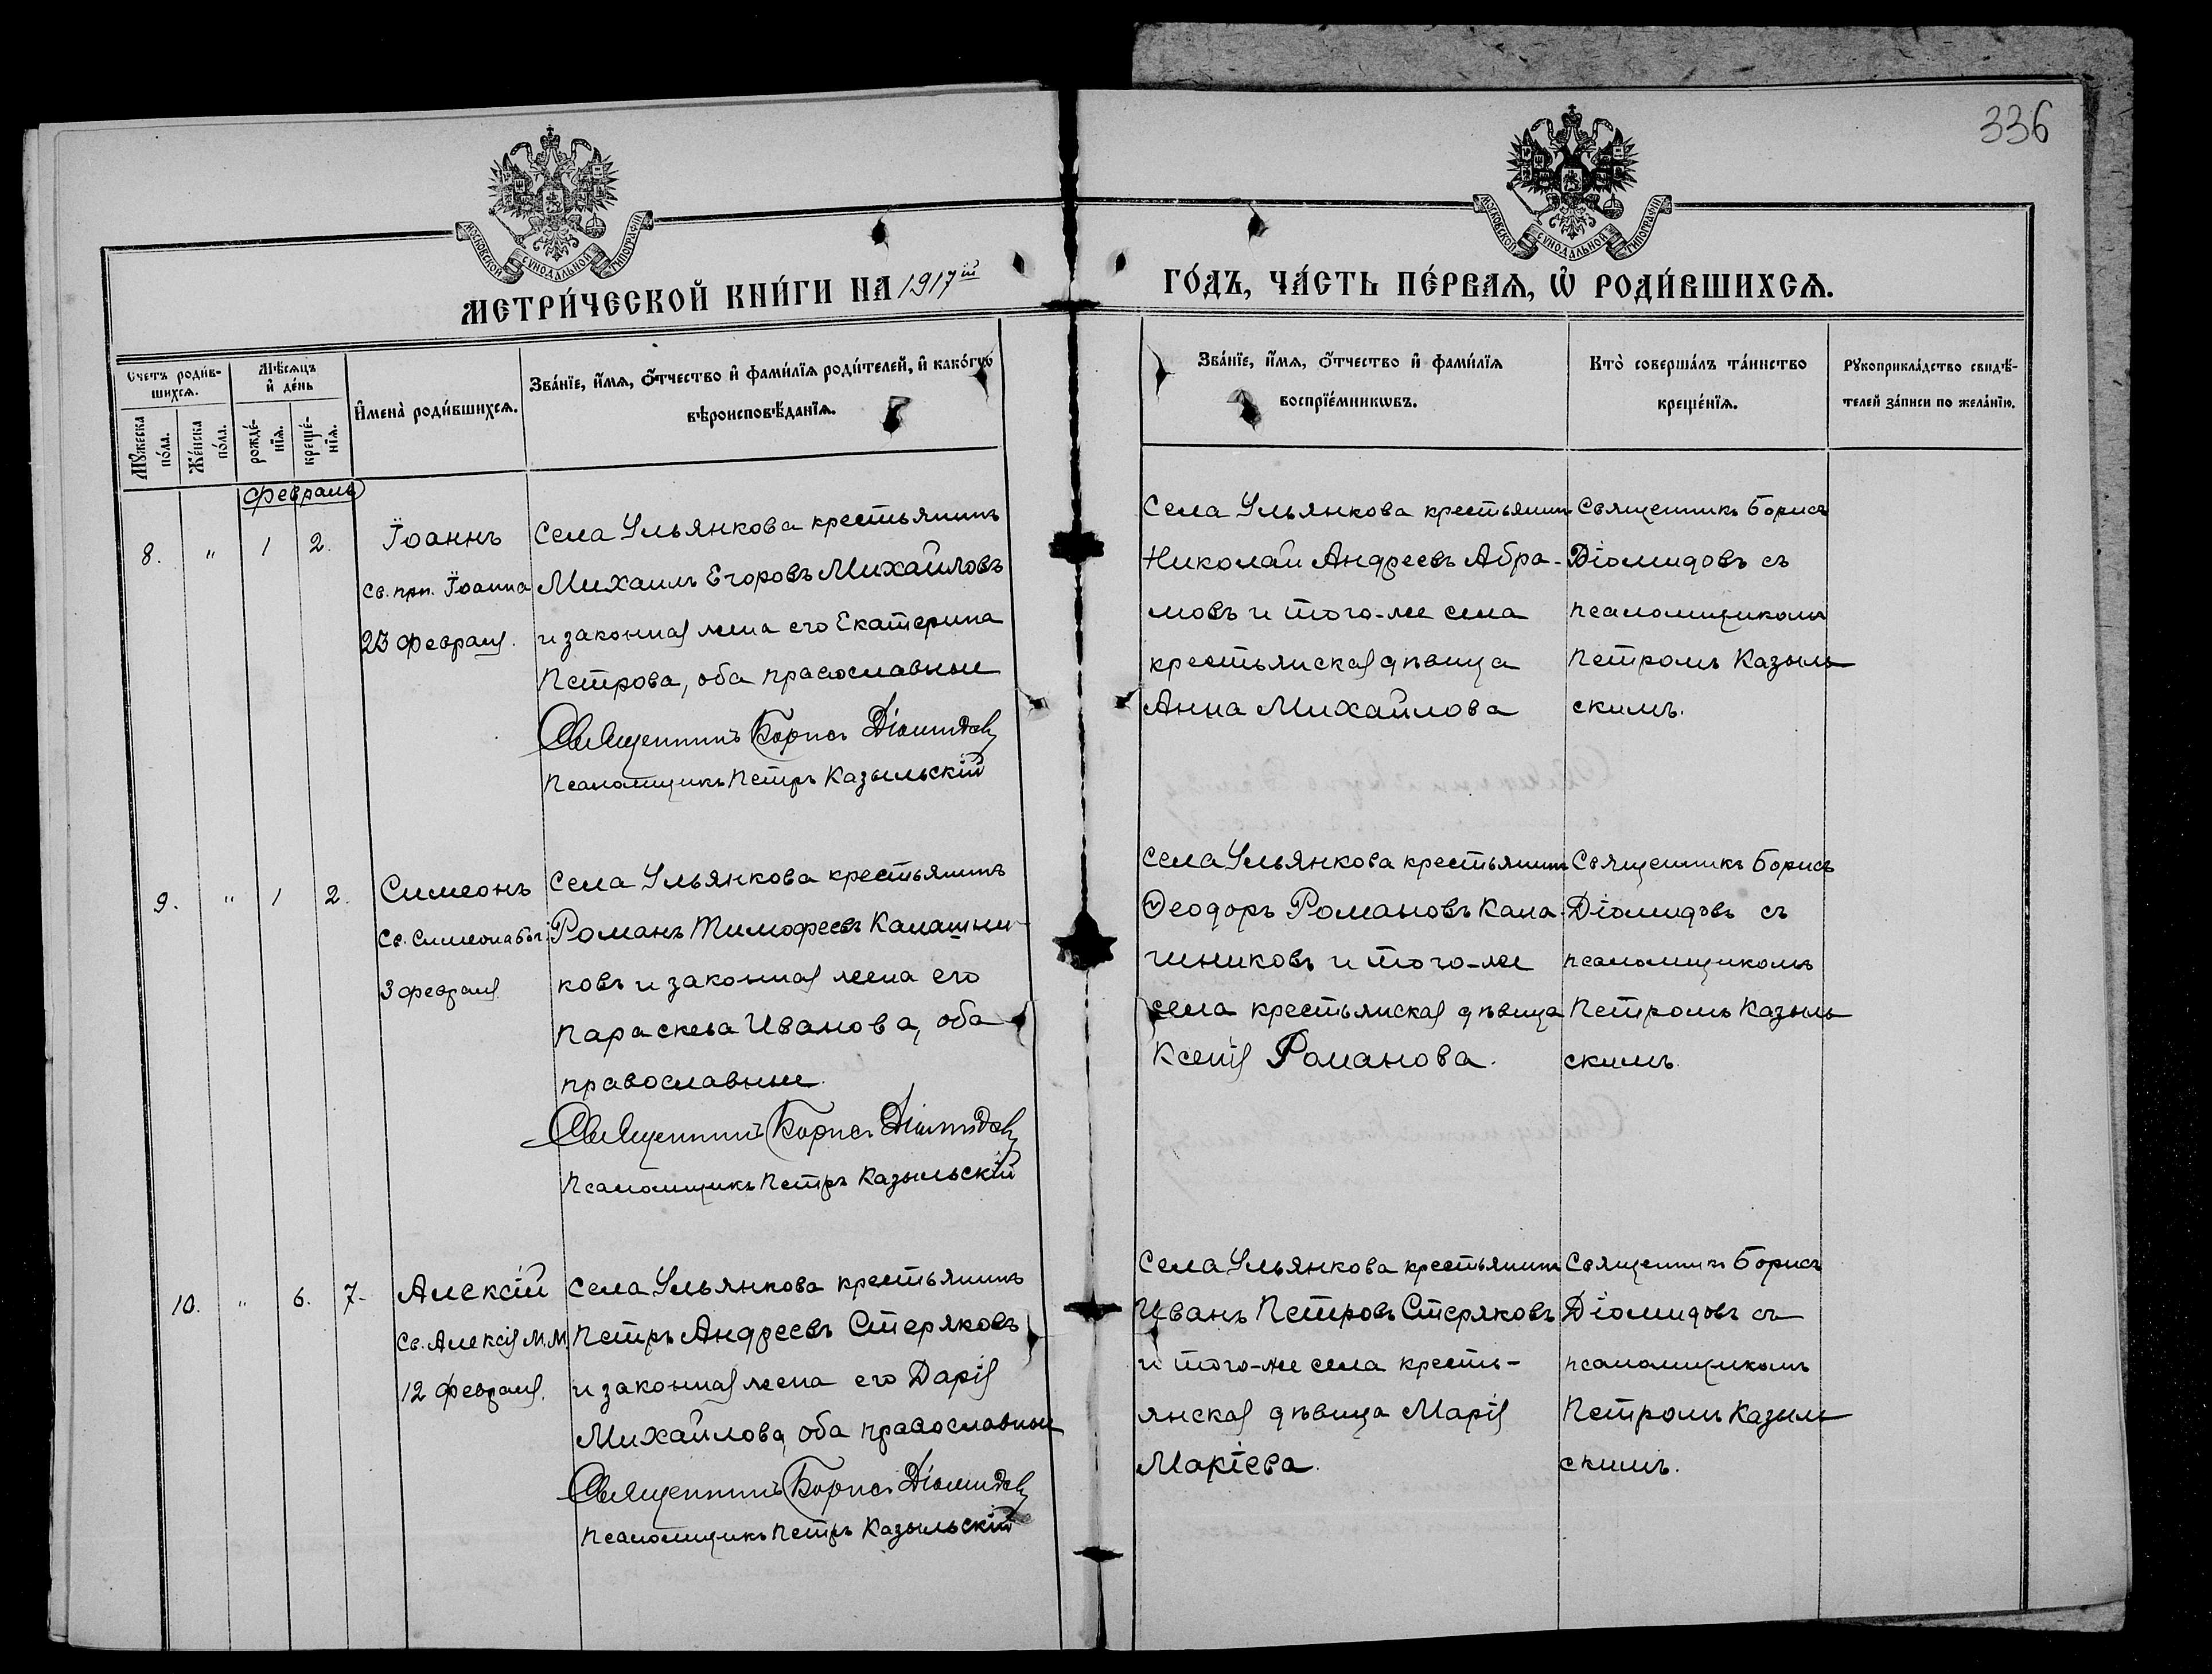 336
МОСКОВСКОЙ СѴНОДАЛЬНОЙ ТИПОГРАФІИ
МОСКОВСКОЙ СѴНОДАЛЬНОЙ ТИПОГРАФІИ
МЕТРИ́ЧЕСКОЙ КНИ́ГИ НА 1917ій
ГО́ДЪ, ЧА́СТЬ ПЕ́РВАѦ, Ѽ РОДИ́ВШИХСѦ.
Счетъ роди́в-
шихсѧ.
Мѣ́сѧцъ
и҆ де́нь
Мꙋ́жеска
по́ла.
Же́нска
по́ла.
рожде́-
нїѧ.
креще́-
нїѧ.
И҆мена̀ роди́вшихсѧ.
Зва́нїе, и҆́мѧ, ѻ҆́тчество и҆ фами́лїѧ роди́телей, и҆ како́гѡ
вѣроисповѣ́данїѧ.
Зва́нїе, и҆́мѧ, ѻ҆́тчество и҆ фами́лїѧ
воспрїе́мникѡвъ.
Кто̀ соверша́лъ та́инство
креще́нїѧ.
Рꙋкоприкла́дство свидѣ́-
телей за́писи по жела́нїю.
Февраль
8. " 1 2.
Іоаннъ
Св. прп. Іоанна
23 Февраля.
Села Ульянкова крестьянинъ
Михаилъ Егоровъ Михайловъ
и законная жена его Екатерина
Петрова, оба православные
Священникъ Борисъ Діомидовъ
Псаломщикъ Петръ Казыльскій
Села Ульянкова крестьянинъ
Николай Андреевъ Абра-
мовъ и того-же села
крестьянская дѣвица
Анна Михайлова
Священникъ Борисъ
Діомидовъ съ
псаломщикомъ
Петромъ Казыль
скимъ.
9. " 1 2.
Симеонъ
Св. Симеона Бог.
3 февраля
Села Ульянкова крестьянинъ
Романъ Тимофеевъ Калашни-
ковъ и законная жена его
Параскева Иванова, оба
православные.
Священникъ Борисъ Діомидовъ
Псаломщикъ Петръ Казыльскій
Села Ульянкова крестьянинъ
Ѳеодоръ Романовъ Кала-
шниковъ и того-же
села крестьянская дѣвица
Ксенія Романова.
Священникъ Борисъ
Діомидовъ съ
псаломщикомъ
Петромъ Казыль
скимъ
10. " 6. 7-
Алексій
Св. Алексія М.М.
12 Февраля.
Села Ульянкова крестьянинъ
Петръ Андреевъ Стеряковъ
и законная жена его Дарія
Михайлова, оба православные
Священникъ Борисъ Діомидовъ
Псаломщикъ Петръ Казыльскій
Села Ульянкова крестьянинъ
Иванъ Петровъ Стеряковъ
и того-же села кресть-
янская дѣвица Марія
Макіева.
Священникъ Борисъ
Діомидовъ съ
псаломщикомъ
Петромъ Казыль
скимъ.